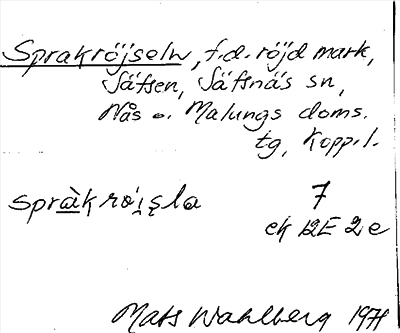 Sprakröjseln, f.d. röjd mark,
Säfsen, Säfsnäs sn,
Nås o. Malungs doms.
tg, Kopp.l.
språ̀kröi̯sla 7
ek 12E 2e
Mats Wahlberg 1971